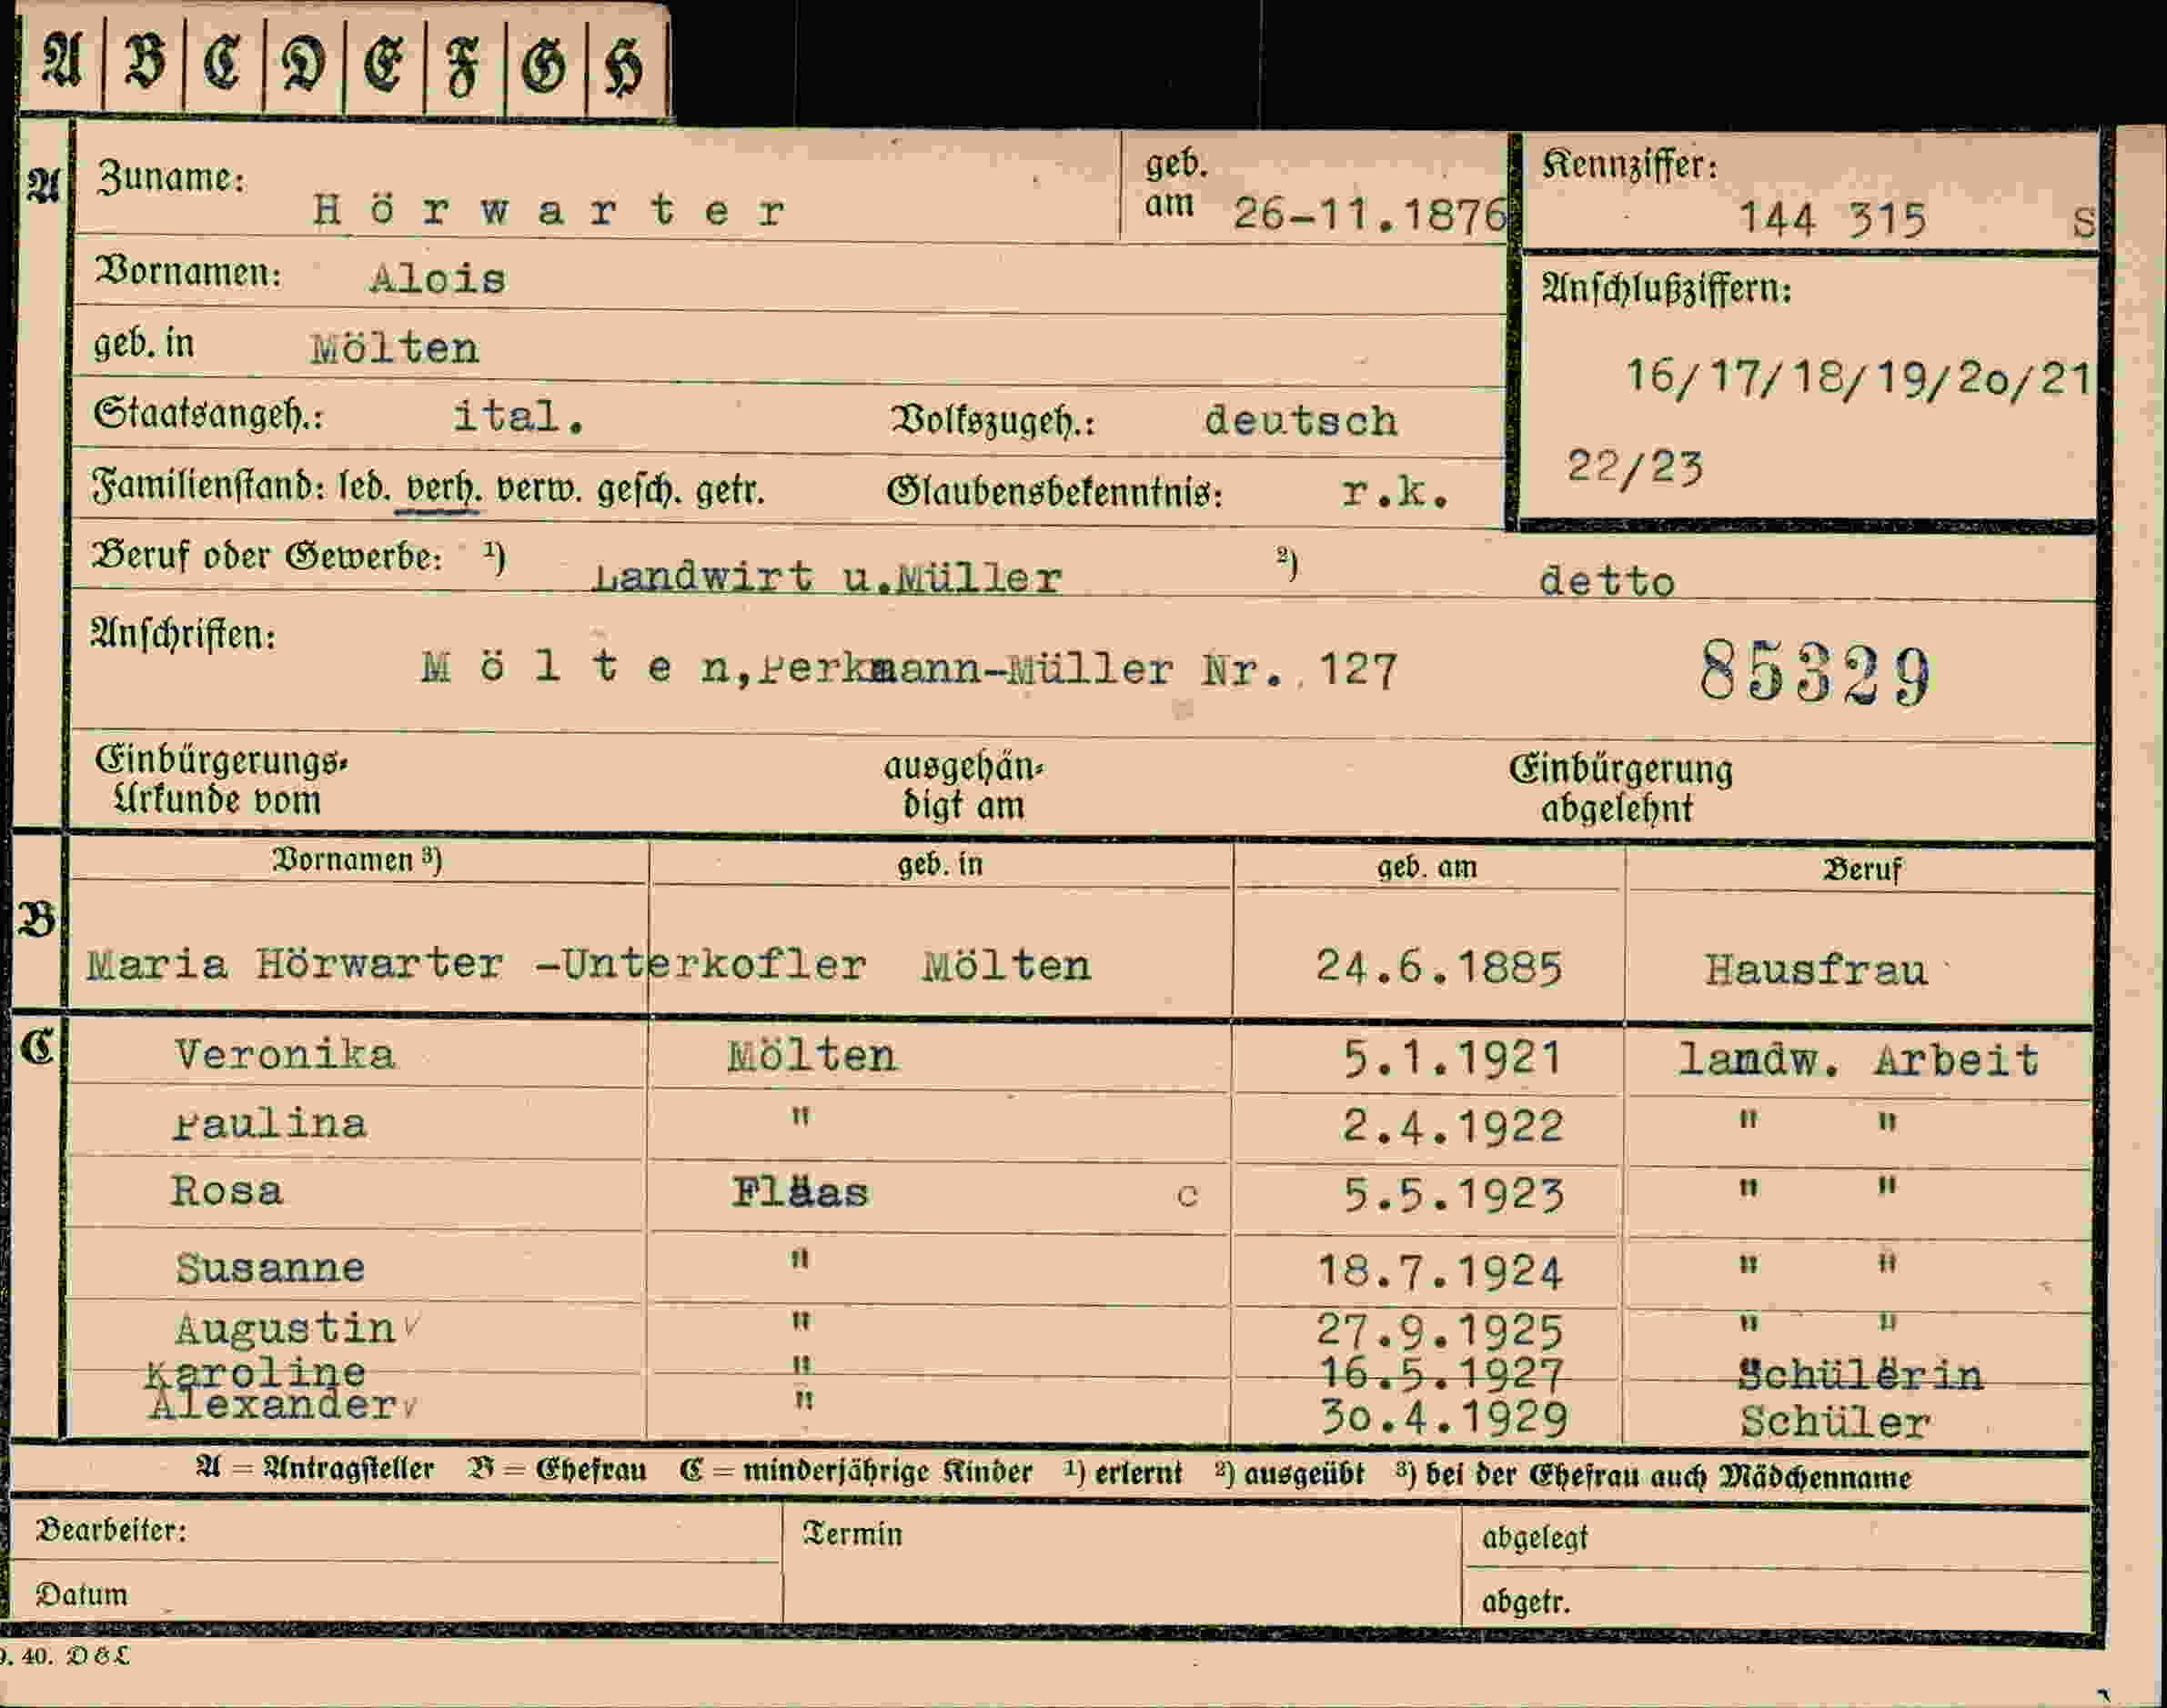 A B C D E F G H
A Zuname: Hörwarter geb. am 26-11.1876 Kennziffer: 144 315 S
Vornamen: Alois Anschlußziffern:
geb. in Mölten 16/17/18/19/2o/21
Staatsangeh.: ital. Volkszugeh.: deutsch 22/23
Familienstand: led. verh. verw. gesch. getr. Glaubensbekenntnis: r.k.
Beruf oder Gewerbe: ¹) Landwirt u.Müller ²) detto
Anschriften: Mölten,Perkmann-Müller Nr. 127 85329
Einbürgerungs- ausgehän- Einbürgerung
Urkunde vom digt am abgelehnt
Vornamen ³) geb. in geb. am Beruf
B Maria Hörwarter -Unterkofler Mölten 24.6.1885 Hausfrau
C Veronika Mölten 5.1.1921 landw. Arbeit
Paulina " 2.4.1922 " "
Rosa Flaas c 5.5.1923 " "
Susanne " 18.7.1924 " "
Augustin√ " 27.9.1925 " "
Karoline " 16.5.1927 Schülerin
Alexander√ " 3o.4.1929 Schüler
A = Antragsteller B = Ehefrau C = minderjährige Kinder ¹) erlernt ²) ausgeübt ³) bei der Ehefrau auch Mädchenname
Bearbeiter: Termin abgelegt
Datum abgetr.
9. 40. D & L